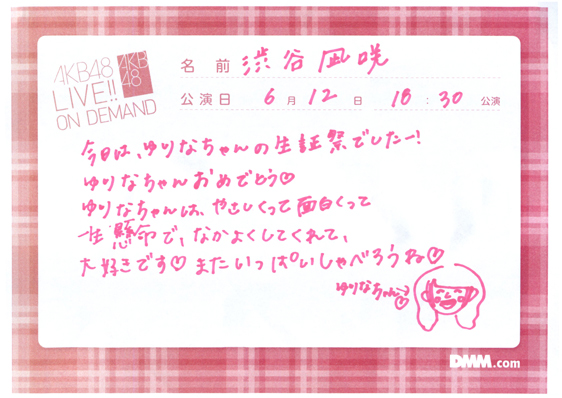 AKB48
LIVE!!
ON DEMAND
AKB
48
名前 渋谷凪咲
公演日 6月12日 18:30公演
今日は、ゆりなちゃんの生誕祭でしたー!
ゆりなちゃんおめでとう♡
ゆりなちゃんは、やさしくって面白くって
一生懸命で、なかよくしてくれて、
大好きです♡またいっぱいしゃべろうね♡
ゆりなちゃん→
DMM.com